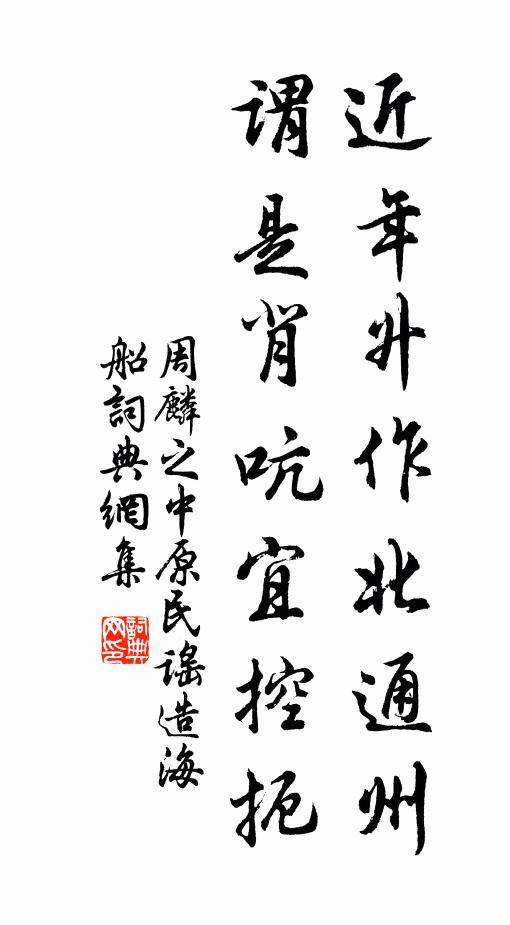 近年升作北通州
謂是背吭宜控扼
周麟之中原民謠造海
船詞典網集
詞典網印